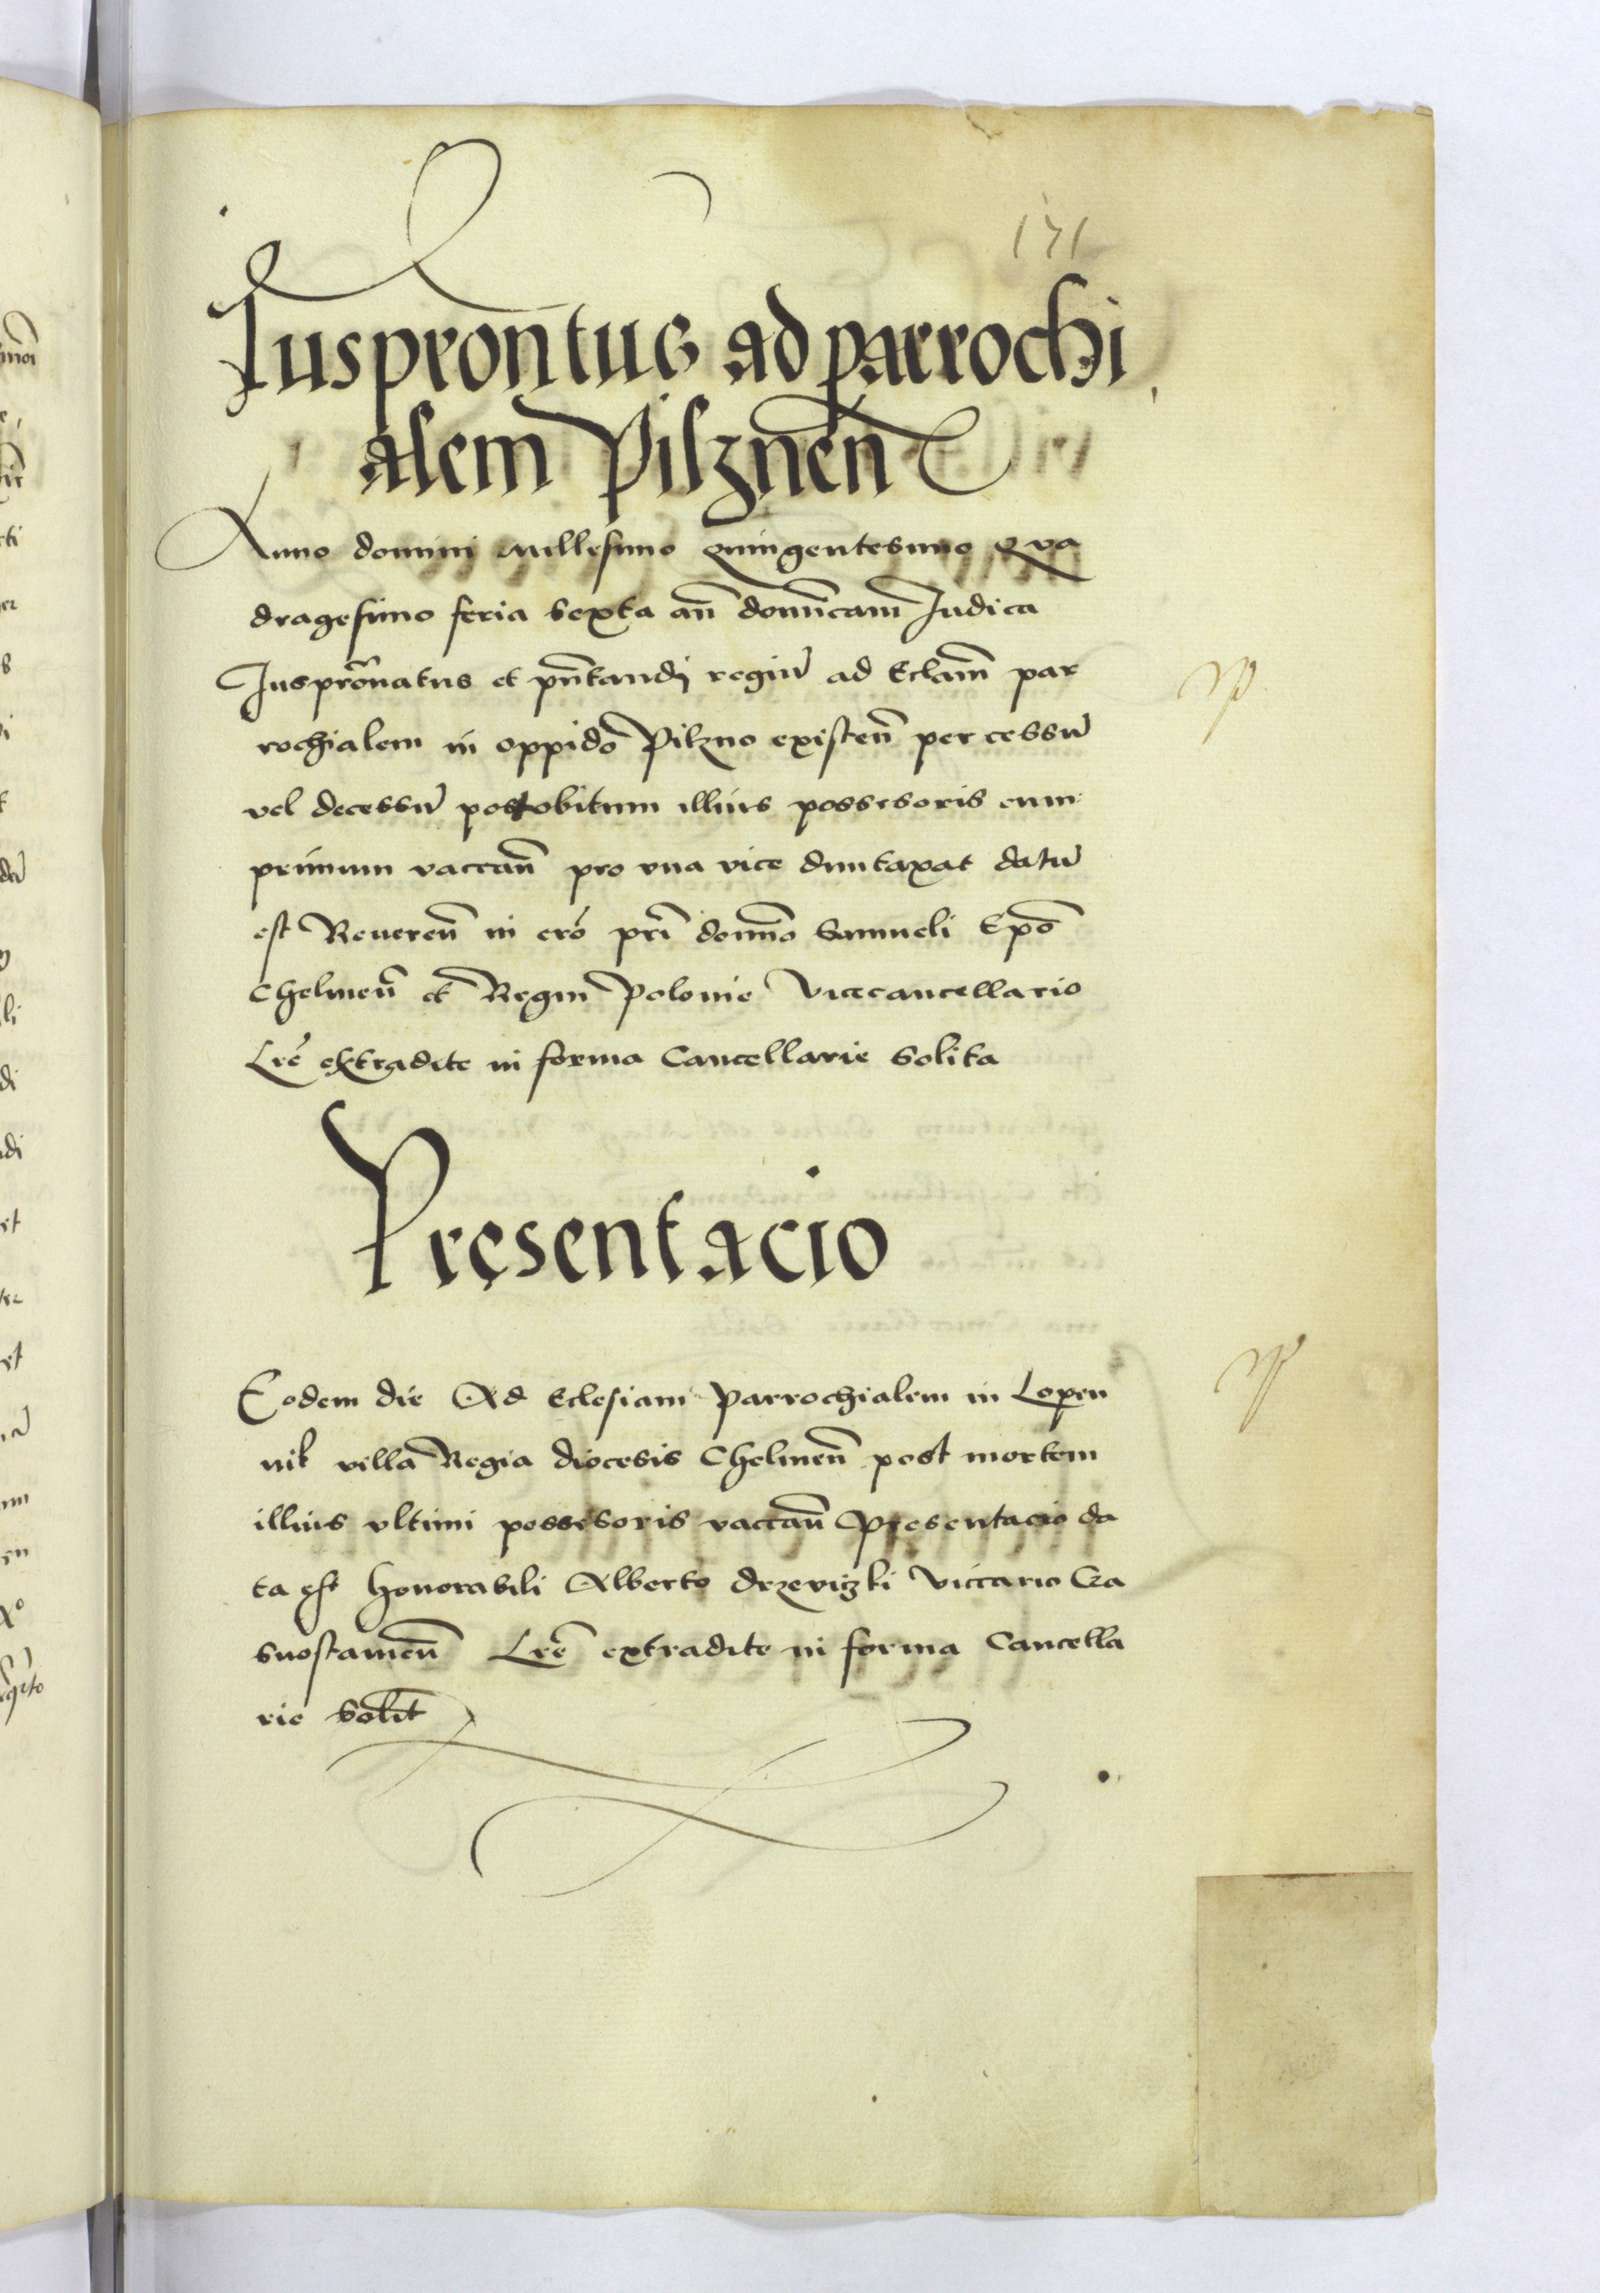 171
Jus prontus ad parrochi
alem Pilznen̄
Anno domini millesimo quingentesimo qua
dragesimo feria sexta an̄ domīcam Iudica
Jus prōnatus et pn̄tandj regiū ad Ecłam̄ par
rochialem in oppido Pilzno existen̄ per cessū
vel decessū post obitum illius possesoris cum
primum vaccan̄ pro vna vice duntaxat datū
est Reueren̄ in crō pr̄i domīo Samueli Ep̄o
Chelmen̄ et Regni Polonie Vicecancellario
Lr̄e extradite in forma Cancellarie solita
Pręsentacio
Eodem die Ad Eclesiam Parrochialem in Lopen
nik villa Regia diocesis Chelmen̄ post mortem
illius vltimi possesoris vaccan̄ Presentacio da
ta est honorabili Alberto drzeviczki viccario Cra
snostamen̄ Lr̄e extradite in forma Cancella
rie solit